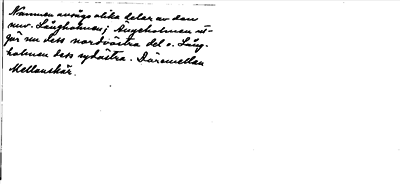 Namnen avsågo olika delar av den
nuv. Långholmen; Ängsholmen ut-
gör nu dess nordvästra del o. Lång-
holmen dess sydöstra. Däremellan
Mellanskär.